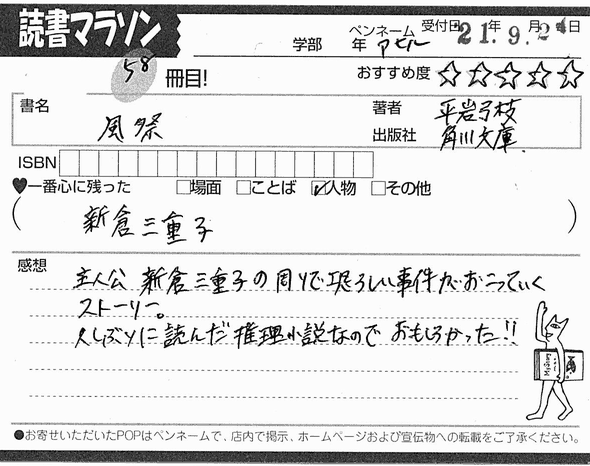 読書マラソン
58 冊目!
学部 年 ペンネーム アピル 受付日 21年 9月 2 日
おすすめ度 ☆☆☆☆☆
書名 風祭
著者 平岩弓枝
出版社 角川文庫
ISBN
♥一番心に残った □場面 □ことば ☑人物 □その他
(新倉三重子)
感想
主人公 新倉三重子の周りで恐ろしい事件がおこっていく
ストーリー。
久しぶりに読んだ推理小説なので おもしろかった!!
●お寄せいただいたPOPはペンネームで、店内で掲示、ホームページおよび宣伝物への転載をご了承ください。